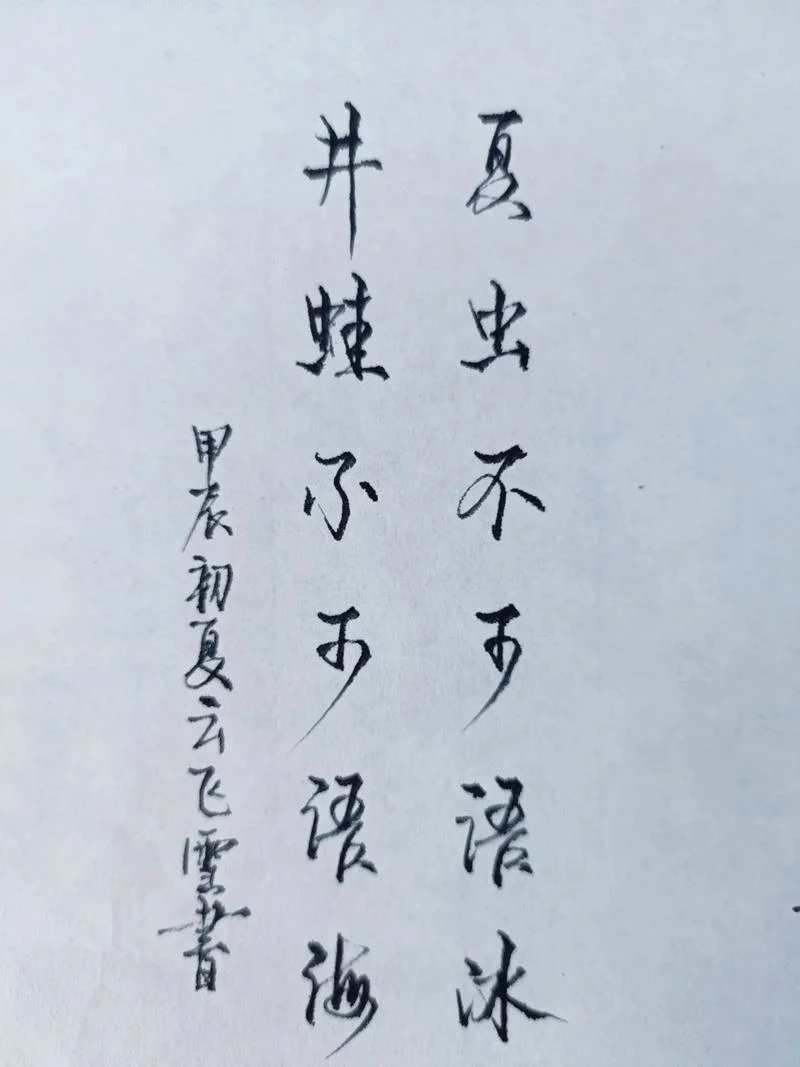 夏虫不可语冰
井蛙不可语海
甲辰初夏云飞雪书